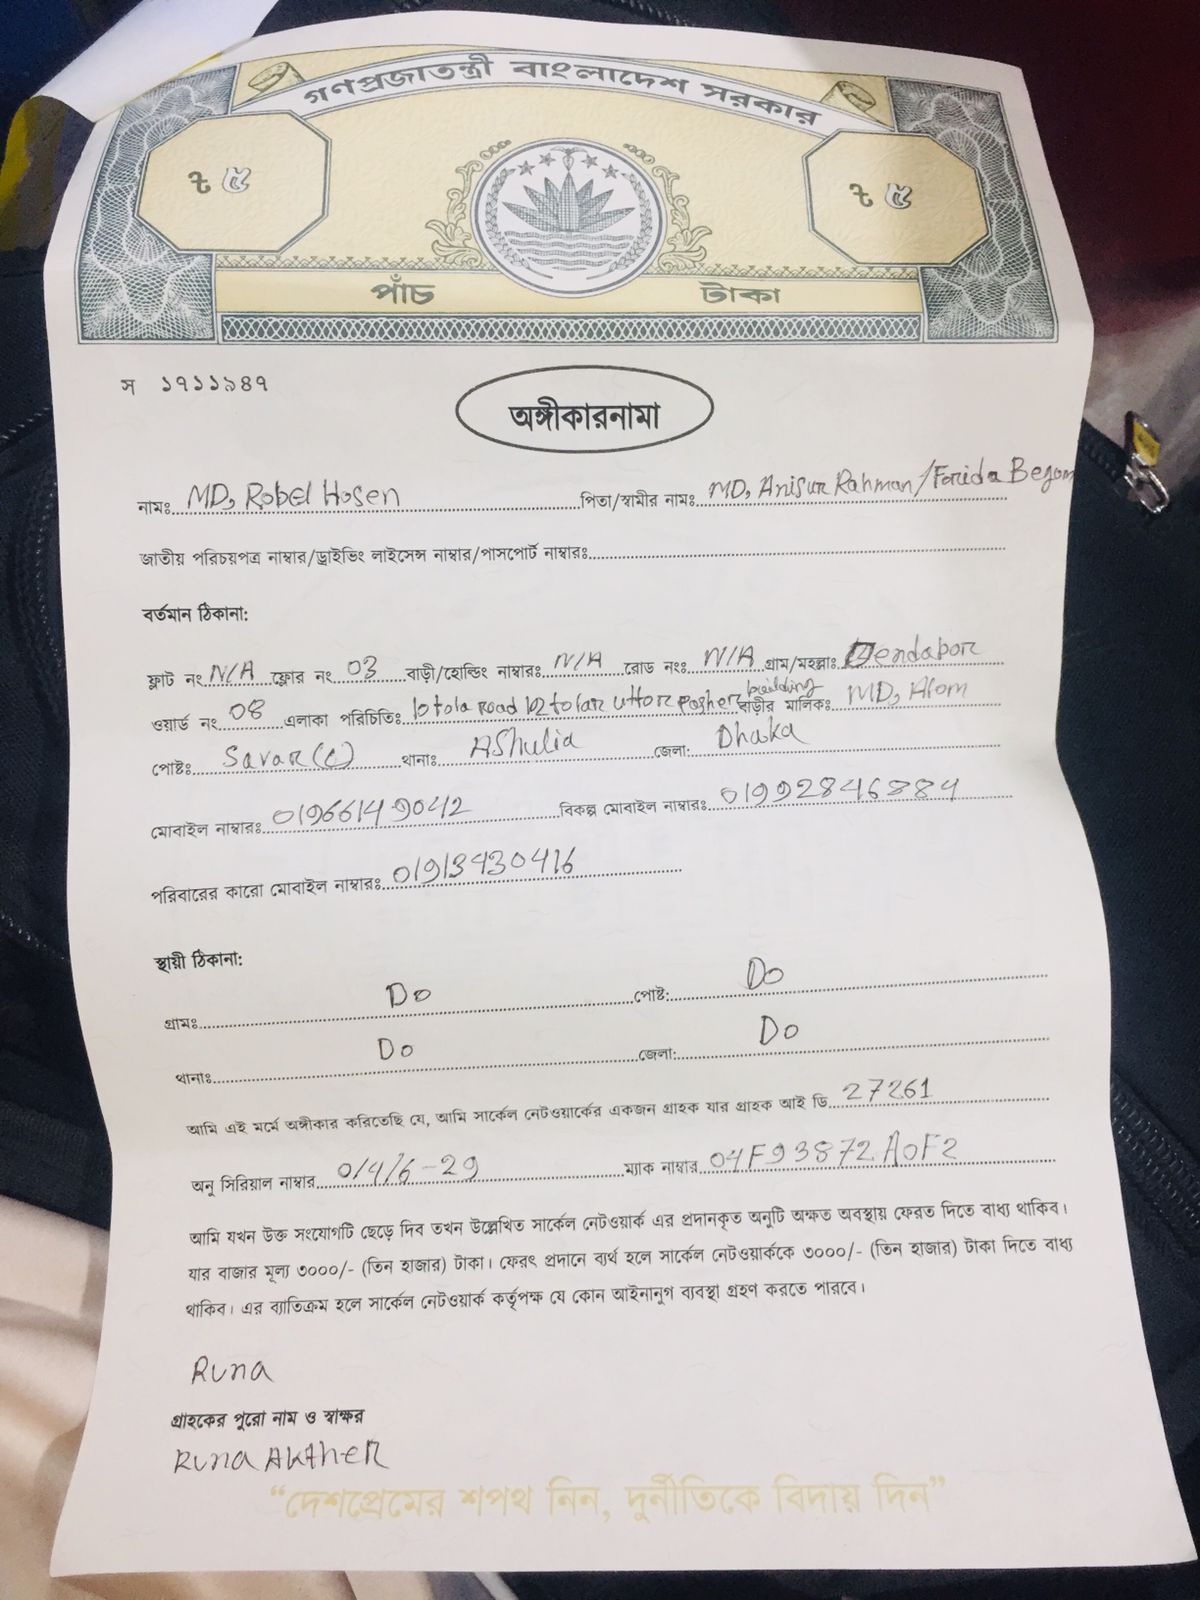 গণপ্রজাতন্ত্রী বাংলাদেশ সরকার
৳ ৫ ৳ ৫
পাঁচ টাকা
স ১৭১১৯৪৭
অঙ্গীকারনামা
নামঃ MD, Robel Hosen পিতা/স্বামীর নামঃ MD, Anisur Rahman/Forida Begom
জাতীয় পরিচয়পত্র নাম্বার/ড্রাইভিং লাইসেন্স নাম্বার/পাসপোর্ট নাম্বারঃ
বর্তমান ঠিকানা:
ফ্লাট নং N/A ফ্লোর নং 03 বাড়ী/হোল্ডিং নাম্বারঃ N/A রোড নংঃ N/A গ্রাম/মহল্লাঃ Dendabor
ওয়ার্ড নং 08 এলাকা পরিচিতিঃ 10 tola road 102 tolar uttor pasher building বাড়ীর মালিকঃ MD, Alom
পোষ্টঃ Savar (C) থানাঃ AShulia জেলা: Dhaka
মোবাইল নাম্বারঃ 01966149042 বিকল্প মোবাইল নাম্বারঃ 01992846884
পরিবারের কারো মোবাইল নাম্বারঃ 01913430416
স্থায়ী ঠিকানা:
গ্রামঃ Do পোষ্ট: Do
থানাঃ Do জেলা: Do
আমি এই মর্মে অঙ্গীকার করিতেছি যে, আমি সার্কেল নেটওয়ার্কের একজন গ্রাহক যার গ্রাহক আই ডি 27261
অনু সিরিয়াল নাম্বার 0/4/6-29 ম্যাক নাম্বার 04F93872A0F2
আমি যখন উক্ত সংযোগটি ছেড়ে দিব তখন উল্লেখিত সার্কেল নেটওয়ার্ক এর প্রদানকৃত অনুটি অক্ষত অবস্থায় ফেরত দিতে বাধ্য থাকিব।
যার বাজার মূল্য ৩০০০/- (তিন হাজার) টাকা। ফেরৎ প্রদানে ব্যর্থ হলে সার্কেল নেটওয়ার্ককে ৩০০০/- (তিন হাজার) টাকা দিতে বাধ্য
থাকিব। এর ব্যাতিক্রম হলে সার্কেল নেটওয়ার্ক কর্তৃপক্ষ যে কোন আইনানুগ ব্যবস্থা গ্রহণ করতে পারবে।
Runa
গ্রাহকের পুরো নাম ও স্বাক্ষর
Runa AKther
“দেশপ্রেমের শপথ নিন, দুর্নীতিকে বিদায় দিন”